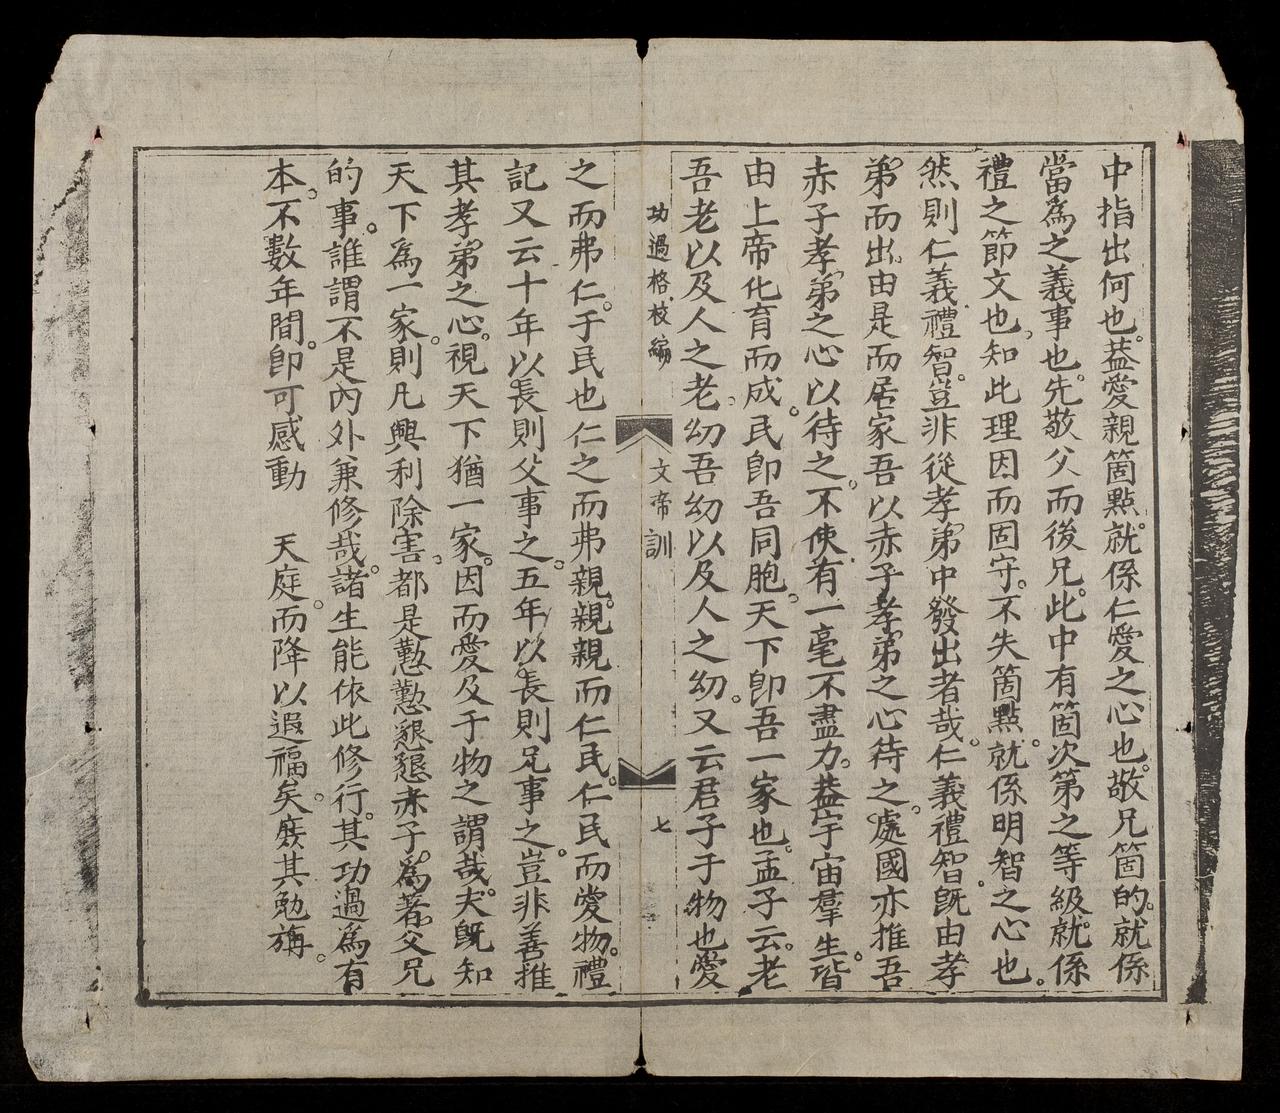 中指出何也。葢愛親箇點。就係仁愛之心也。敬兄箇的。就係
當為之義事也。先敬父而後兄。此中有箇次第之等級。就係
禮之節文也。知此理因而固守。不失箇點。就係明智之心也。
然則仁義禮智。豈非從孝弟中發出者哉。仁義禮智。既由孝
弟而出。由是而居家吾以赤子孝弟之心待之。處國亦推吾
赤子孝弟之心以待之。不使有一毫不盡力。葢宇宙羣生。皆
由上帝化育而成。民卽吾同胞。天下卽吾一家也。孟子云。老
吾老以及人之老。幼吾幼以及人之幼。又云君子于物也愛
功過格校編 文帝訓 七
之而弗仁。于民也仁之而弗親。親親而仁民。仁民而愛物。禮
記又云十年以長則父事之。五年以長則兄事之。豈非善推
其孝弟之心。視天下猶一家。因而愛及于物之謂哉。夫既知
天下為一家。則凡興利除害。都是懃懃懇懇赤子。為著父兄
的事。誰謂不是內外兼修哉。諸生能依此修行。其功過為有
本。不數年間。卽可感動 天庭。而降以遐福矣。庶其勉旃。